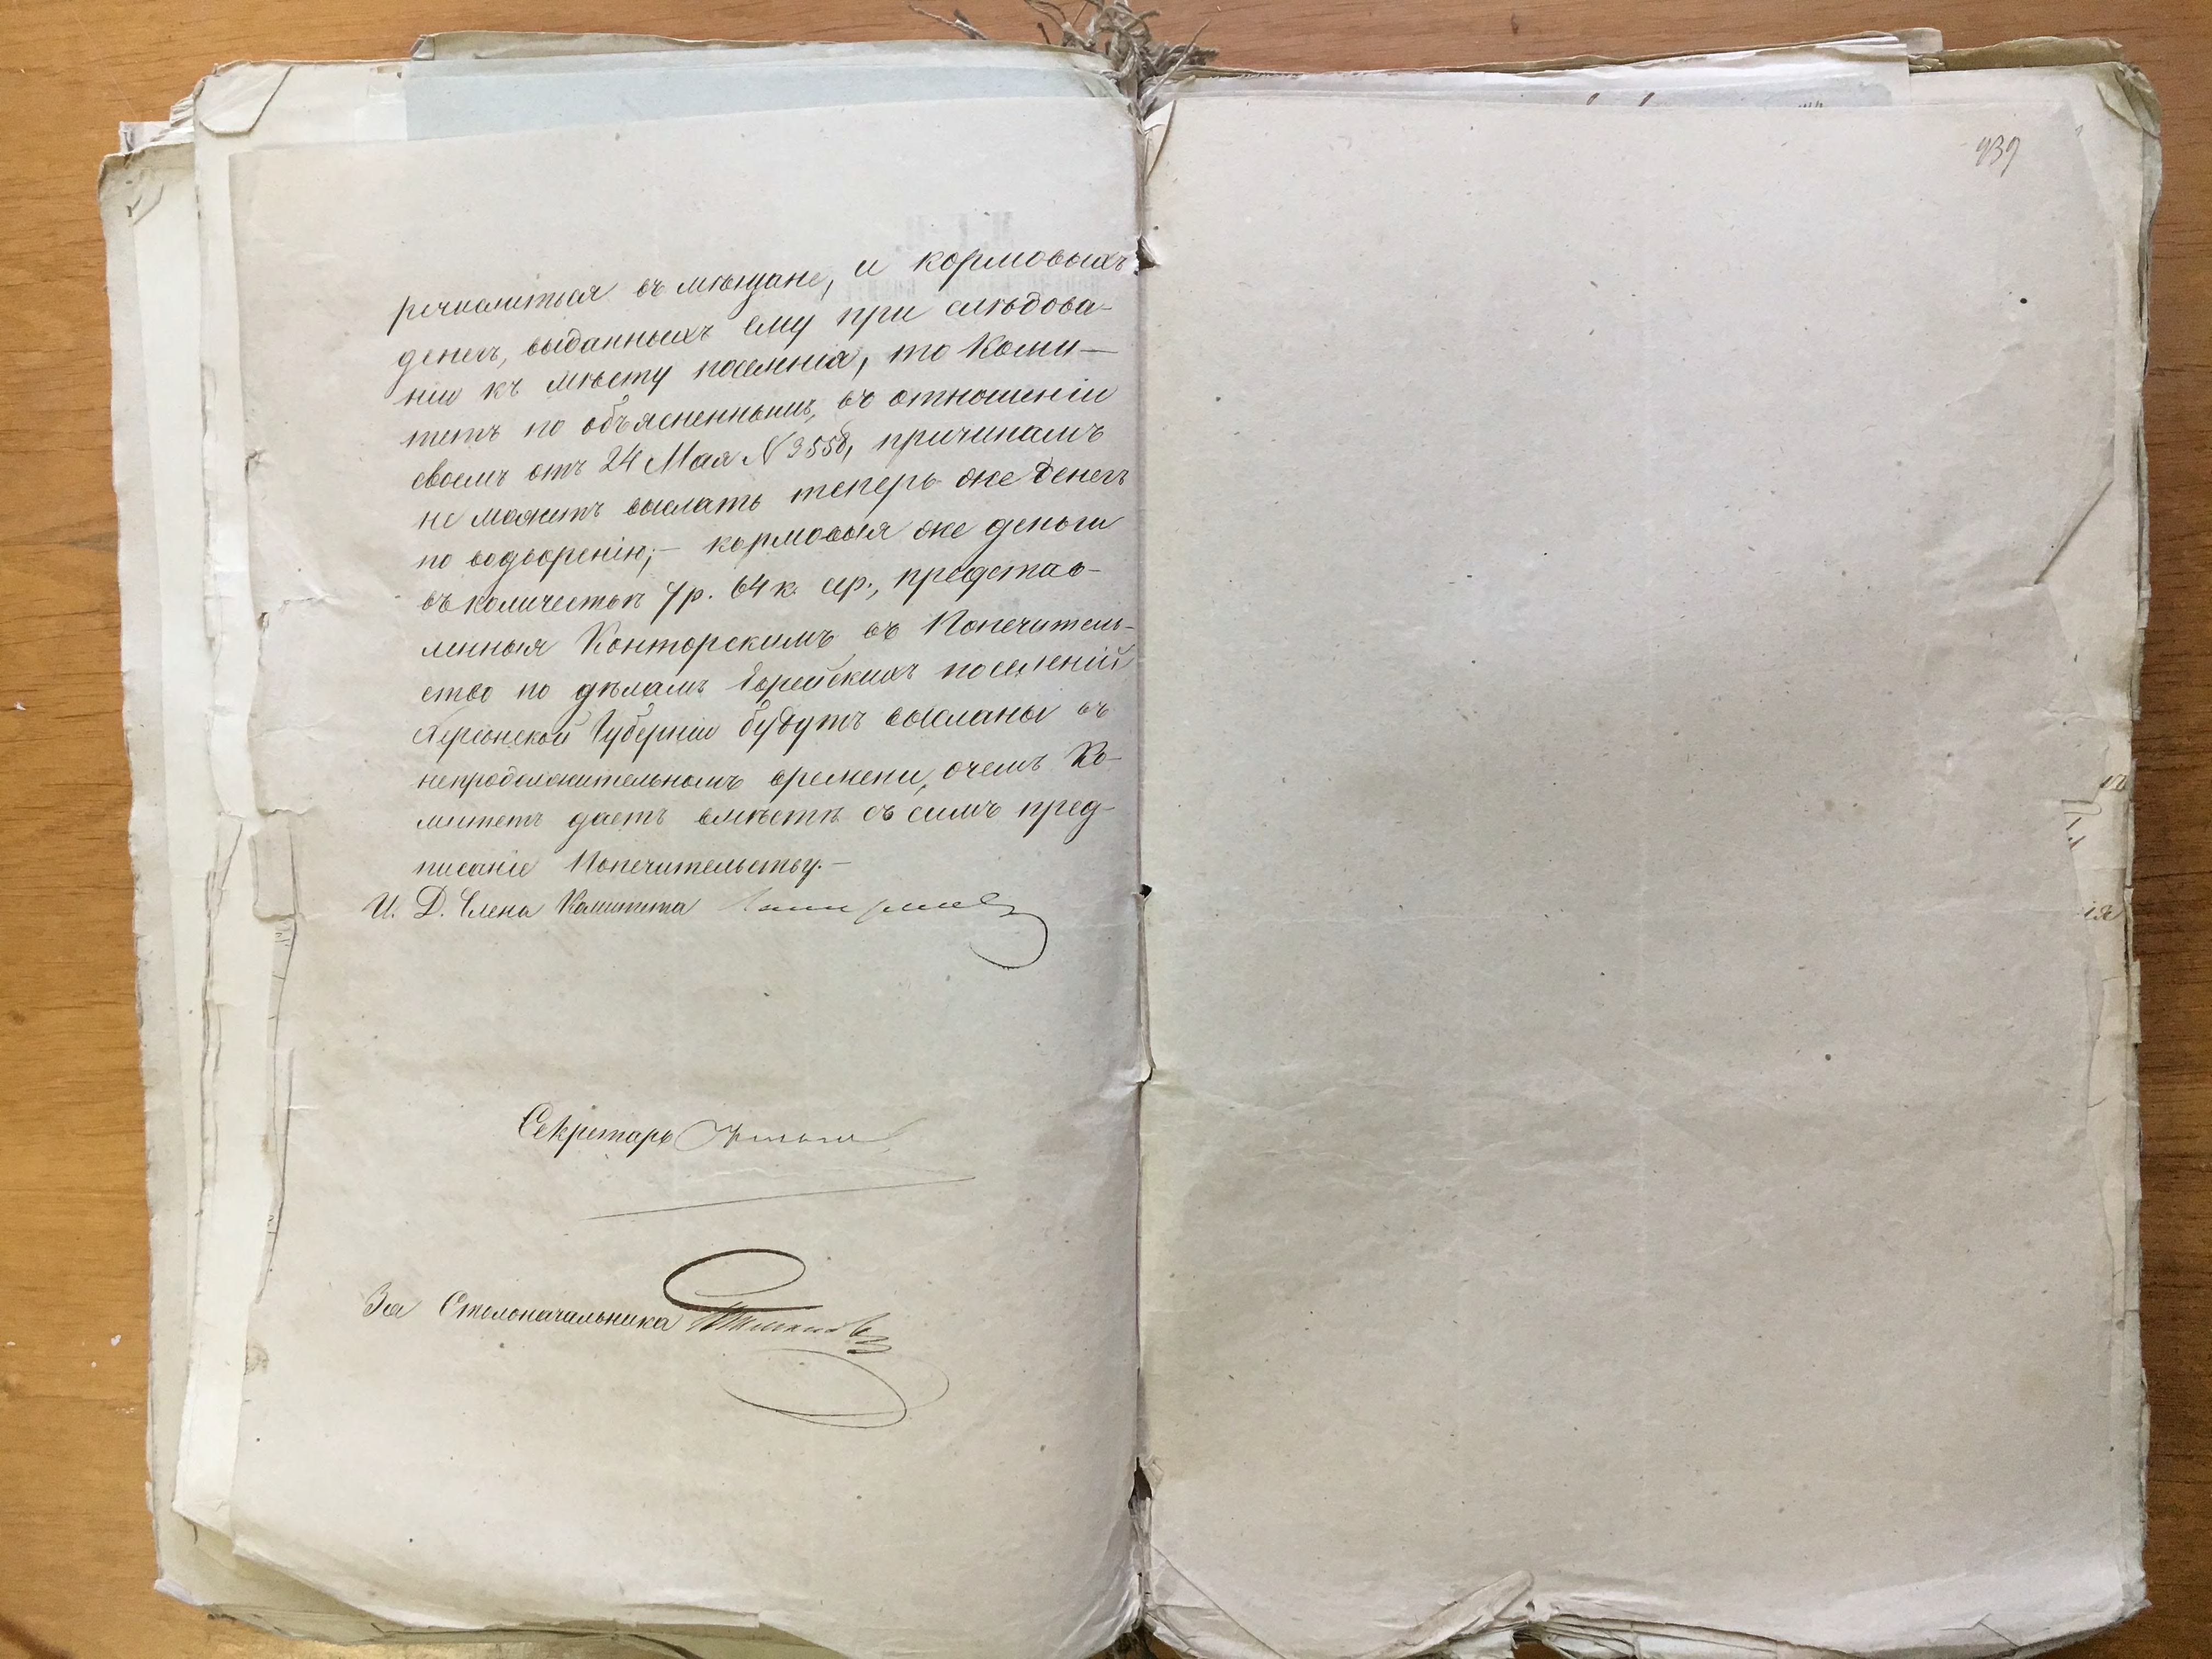 речислиться въ мѣщане, и кормовыхъ
денегъ, выданныхъ ему при слѣдова-
ніи къ мѣсту поселенія, то Коми-
тетъ по объясненнымъ, въ отношеніи
своемъ отъ 24 Мая N 3558, причинамъ
не можетъ выслать теперь же денегъ
по водворенію;- кормовыя же деньги
въ количествѣ 7р. 64к. сер., представ-
ленныя Конторскимъ въ Попечитель-
ство по дѣламъ Еврейскихъ поселеній
Херсонской Губерніи будутъ высланы въ
непродолжительномъ времени, очемъ Ко-
митетъ даетъ вмѣстѣ съ симъ пред-
писаніе Попечительству.-
И. Д. Члена Комитета
Секретарь
За Столоначальника
939